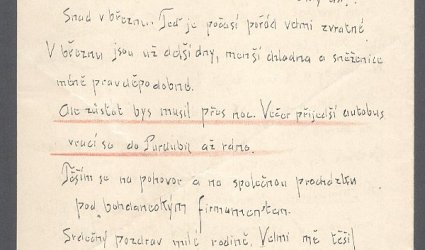 Snad v březnu. Teď je počasí pořád velmi zvratné.
V březnu jsou už delší dny, menší chladna a sněženice
méně pravděpodobné.
Ale zůstat bys musil přes noc. Večer přijedší autobus
vrací se do Pardubic až ráno.
Těším se na pohovor a na společnou procházku
pod bohdanečským firmamentem.
Srdečný pozdrav milé rodině. Velmi mě těšil